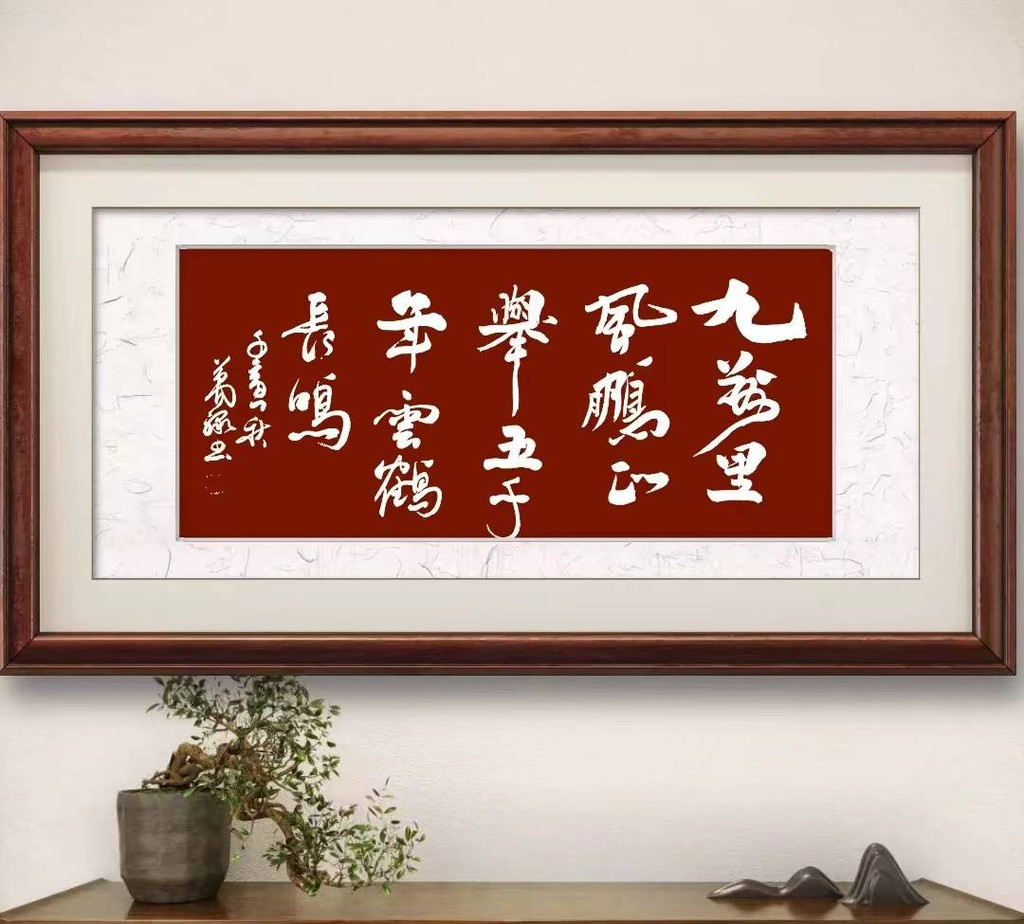 九萬里
風鵬正
舉五千
年雲鶴
長鳴
秋
萬書